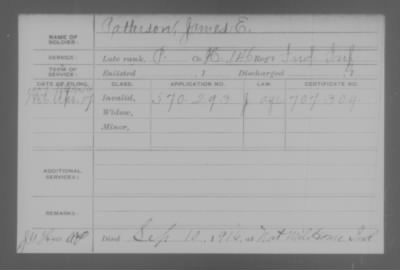 NAME OF SOLDIER: Patterson, James E.
SERVICE: Late rank, P. Co. K, 146 Reg't Ind Inf
TERM OF SERVICE: Enlisted , 1 Discharged , 1
DATE OF FILING. CLASS. APPLICATION NO. LAW. CERTIFICATE NO.
Apr. 17 Invalid, 570.293 J 707.304
Widow,
Minor,
ADDITIONAL SERVICES:
REMARKS:
Died Sep 10, 191 at Nat Mil Home Ind